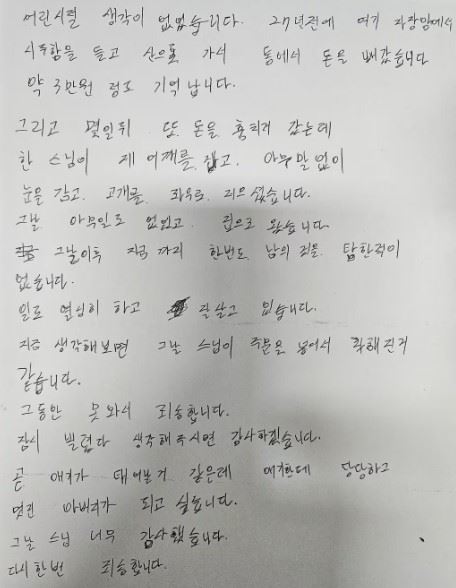 어린시절 생각이 없었습니다. 27년전에 여기 자장암에서
시주함을 들고 산으로 가서 통에서 돈을 빼갔습니다
약 3만원 정도 기억납니다.
그리고 몇일뒤 또 돈을 훔치러 갔는데
한 스님이 제 어깨를 잡고, 아무말없이
눈을 감고, 고개를 좌우로 저으셨습니다.
그날 아무일도 없었고, 집으로 왔습니다.
그날이후 지금까지 한번도 남의 것을 탐한적이
없습니다.
일도 열심히 하고 잘살고 있습니다.
지금 생각해보면 그날 스님이 주문을 넣어서 착해진거
같습니다.
그동안 못와서 죄송합니다.
잠시 빌렸다 생각해주시면 감사하겠습니다.
곧 애기가 태어날거 같은데 애기한테 당당하고
멋진 아버지가 되고 싶습니다.
그날 스님 너무 감사했습니다.
다시한번 죄송합니다.